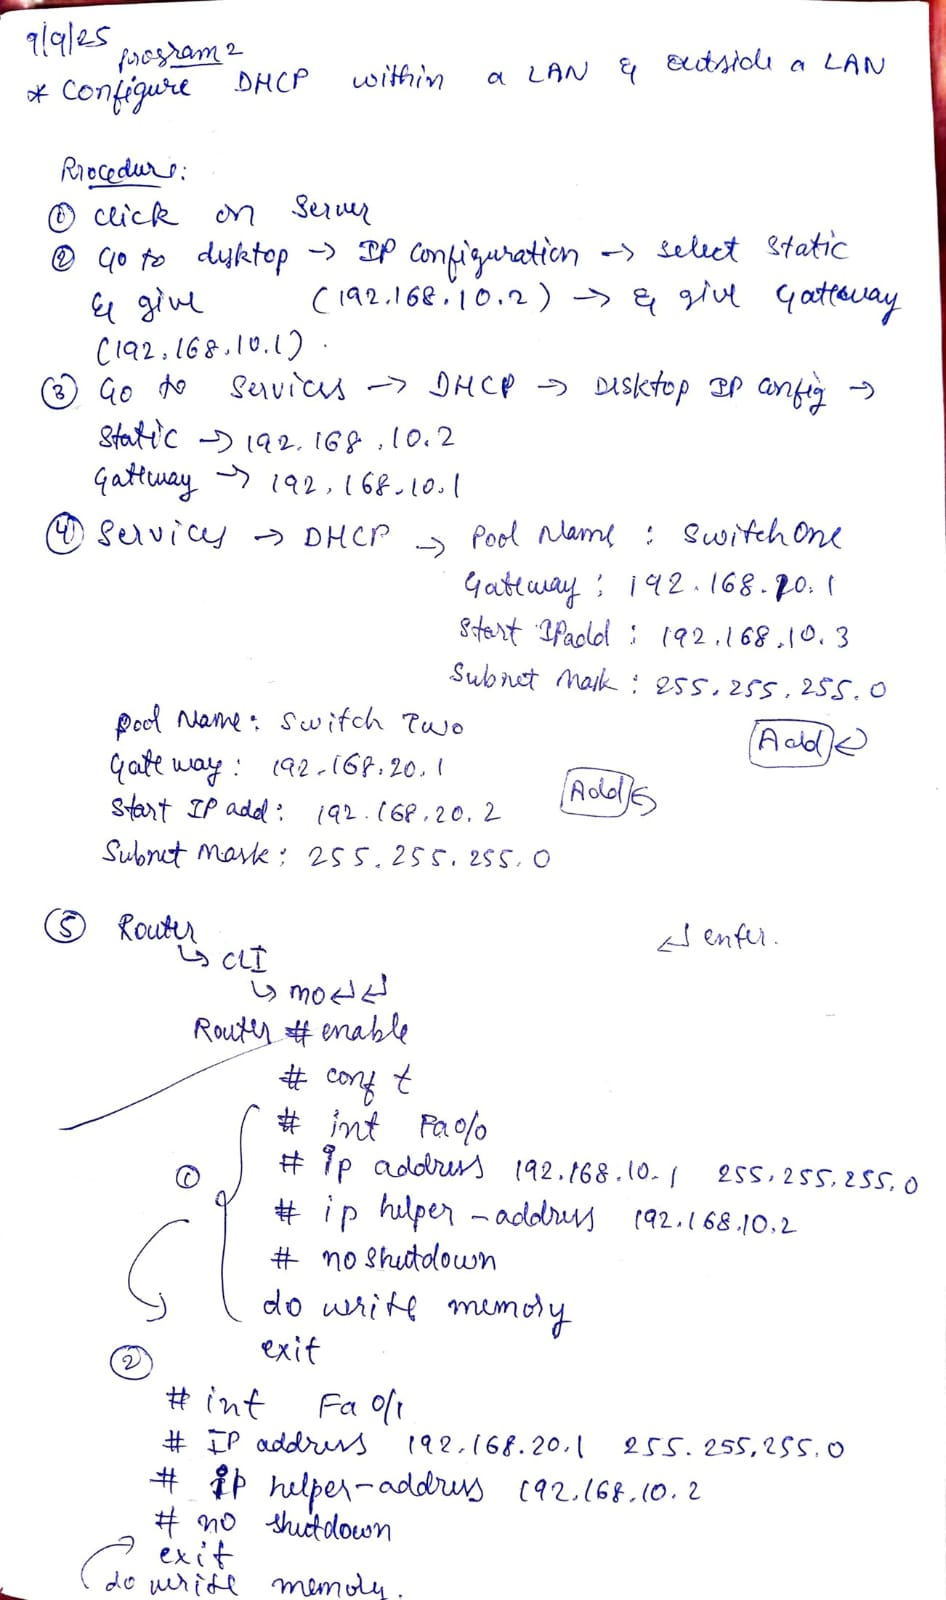 9/9/25
program 2
* Configure DHCP within a LAN & outside a LAN
Procedure:
① click on Server
② Go to dysktop → IP Configuration → select static
& give (192.168.10.2) → & give Gateway
(192.168.10.1).
③ Go to Services → DHCP → Desktop IP config →
Static → 192.168.10.2
Gateway → 192.168.10.1
④ Services → DHCP → Pool Name : Switch One
Gateway : 192.168.20.1
Start IPadd : 192.168.10.3
Subnet Mask : 255.255.255.0
Add ↵
Pool Name : Switch Two
Gate way : 192.168.20.1
Start IP add : 192.168.20.2
Add ↵
Subnet Mask : 255.255.255.0
⑤ Router
↵ enter.
↳ CLI
↳ no ↵ ↵
Router # enable
# conf t
# int Fa0/0
① # ip address 192.168.10.1 255.255.255.0
# ip helper-address 192.168.10.2
# no shutdown
do write memory
exit
②
# int Fa 0/1
# IP address 192.168.20.1 255.255.255.0
# ip helper-address 192.168.10.2
# no shutdown
exit
do write memory.